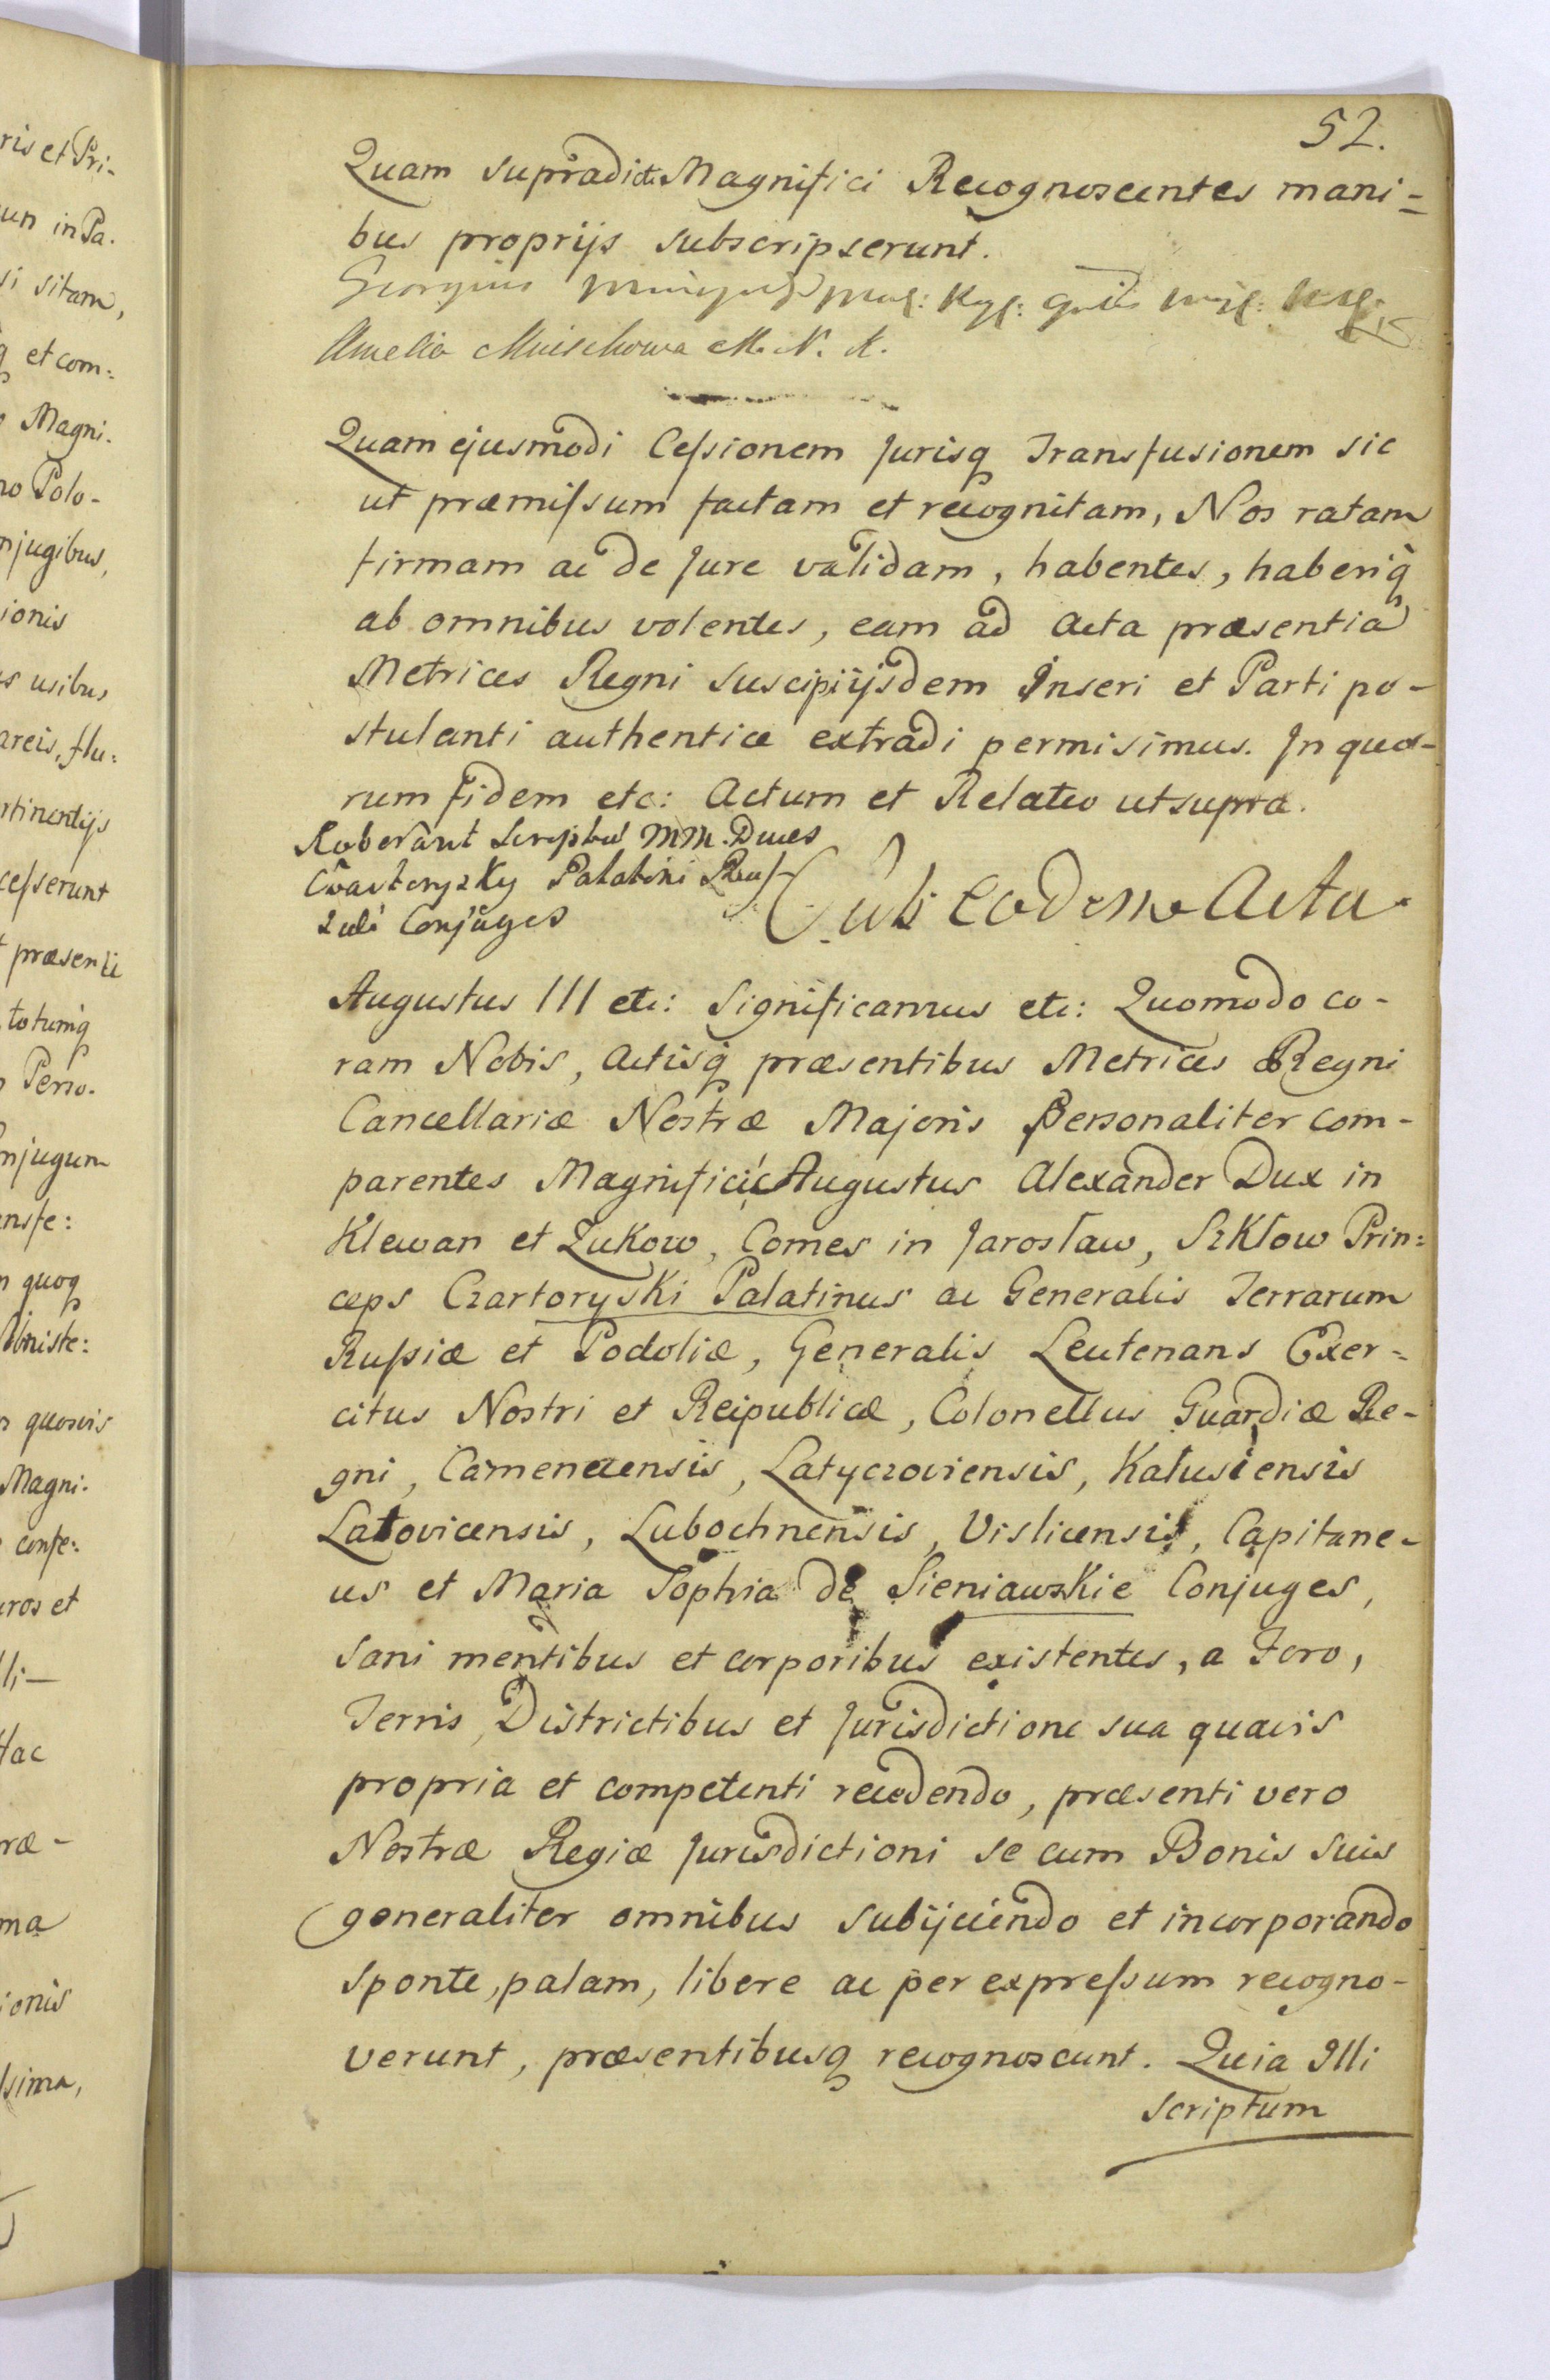 52.
Quam supradicti Magnifici Recognoscentes mani=
bus proprijs subscripserunt.
Georgius
Amelia Mnischowa M. N. K.
Quam ejusmodi Cessionem Jurisq Transfusionem sic
ut præmissum factam et recognitam, Nos ratam
firmam ac de Jure validam, habentes, haberiq
ab omnibus volentes, eam ad Acta præsentia
Metrices Regni suscipi ijsdem Inseri et Parti po-
stulanti authentice extradi permisimus. In quo-
rum fidem etc: Actum et Relatio ut supra.
Roborant Scriptum MM. Duces
Czartoryzky Palatini Russ
Conjuges
Sub eodem Actu.
Augustus III etc: Significamus etc: Quomodo co-
ram Nobis, Actisq præsentibus Metrices Regni
Cancellariæ Nostræ Majoris Personaliter com-
parentes Magnifici Augustus Alexander Dux in
Klewan et Zukow, Comes in Jarosław, Szkłow Prin=
ceps Czartoryski Palatinus ac Generalis Terrarum
Russiæ et Podoliæ, Generalis Leutenans Exer=
citus Nostri et Reipublicæ, Colonellus Guardiæ Re-
gni, Camenecensis, Latyczoviensis, Kałusiensis
Latovicensis, Lubochnensis, Vislicensis, Capitane-
us et Maria Sophia de Sieniawskie Conjuges,
sani mentibus et corporibus existentes, a Foro,
Terris, Districtibus et Jurisdictione sua quavis
propria et competenti recedendo, præsenti vero
Nostræ Regiæ Jurisdictioni se cum Bonis suis
generaliter omnibus subijciendo et incorporando
sponte, palam, libere ac per expressum recogno-
verunt, præsentibusq recognoscunt. Quia Illi
scriptum